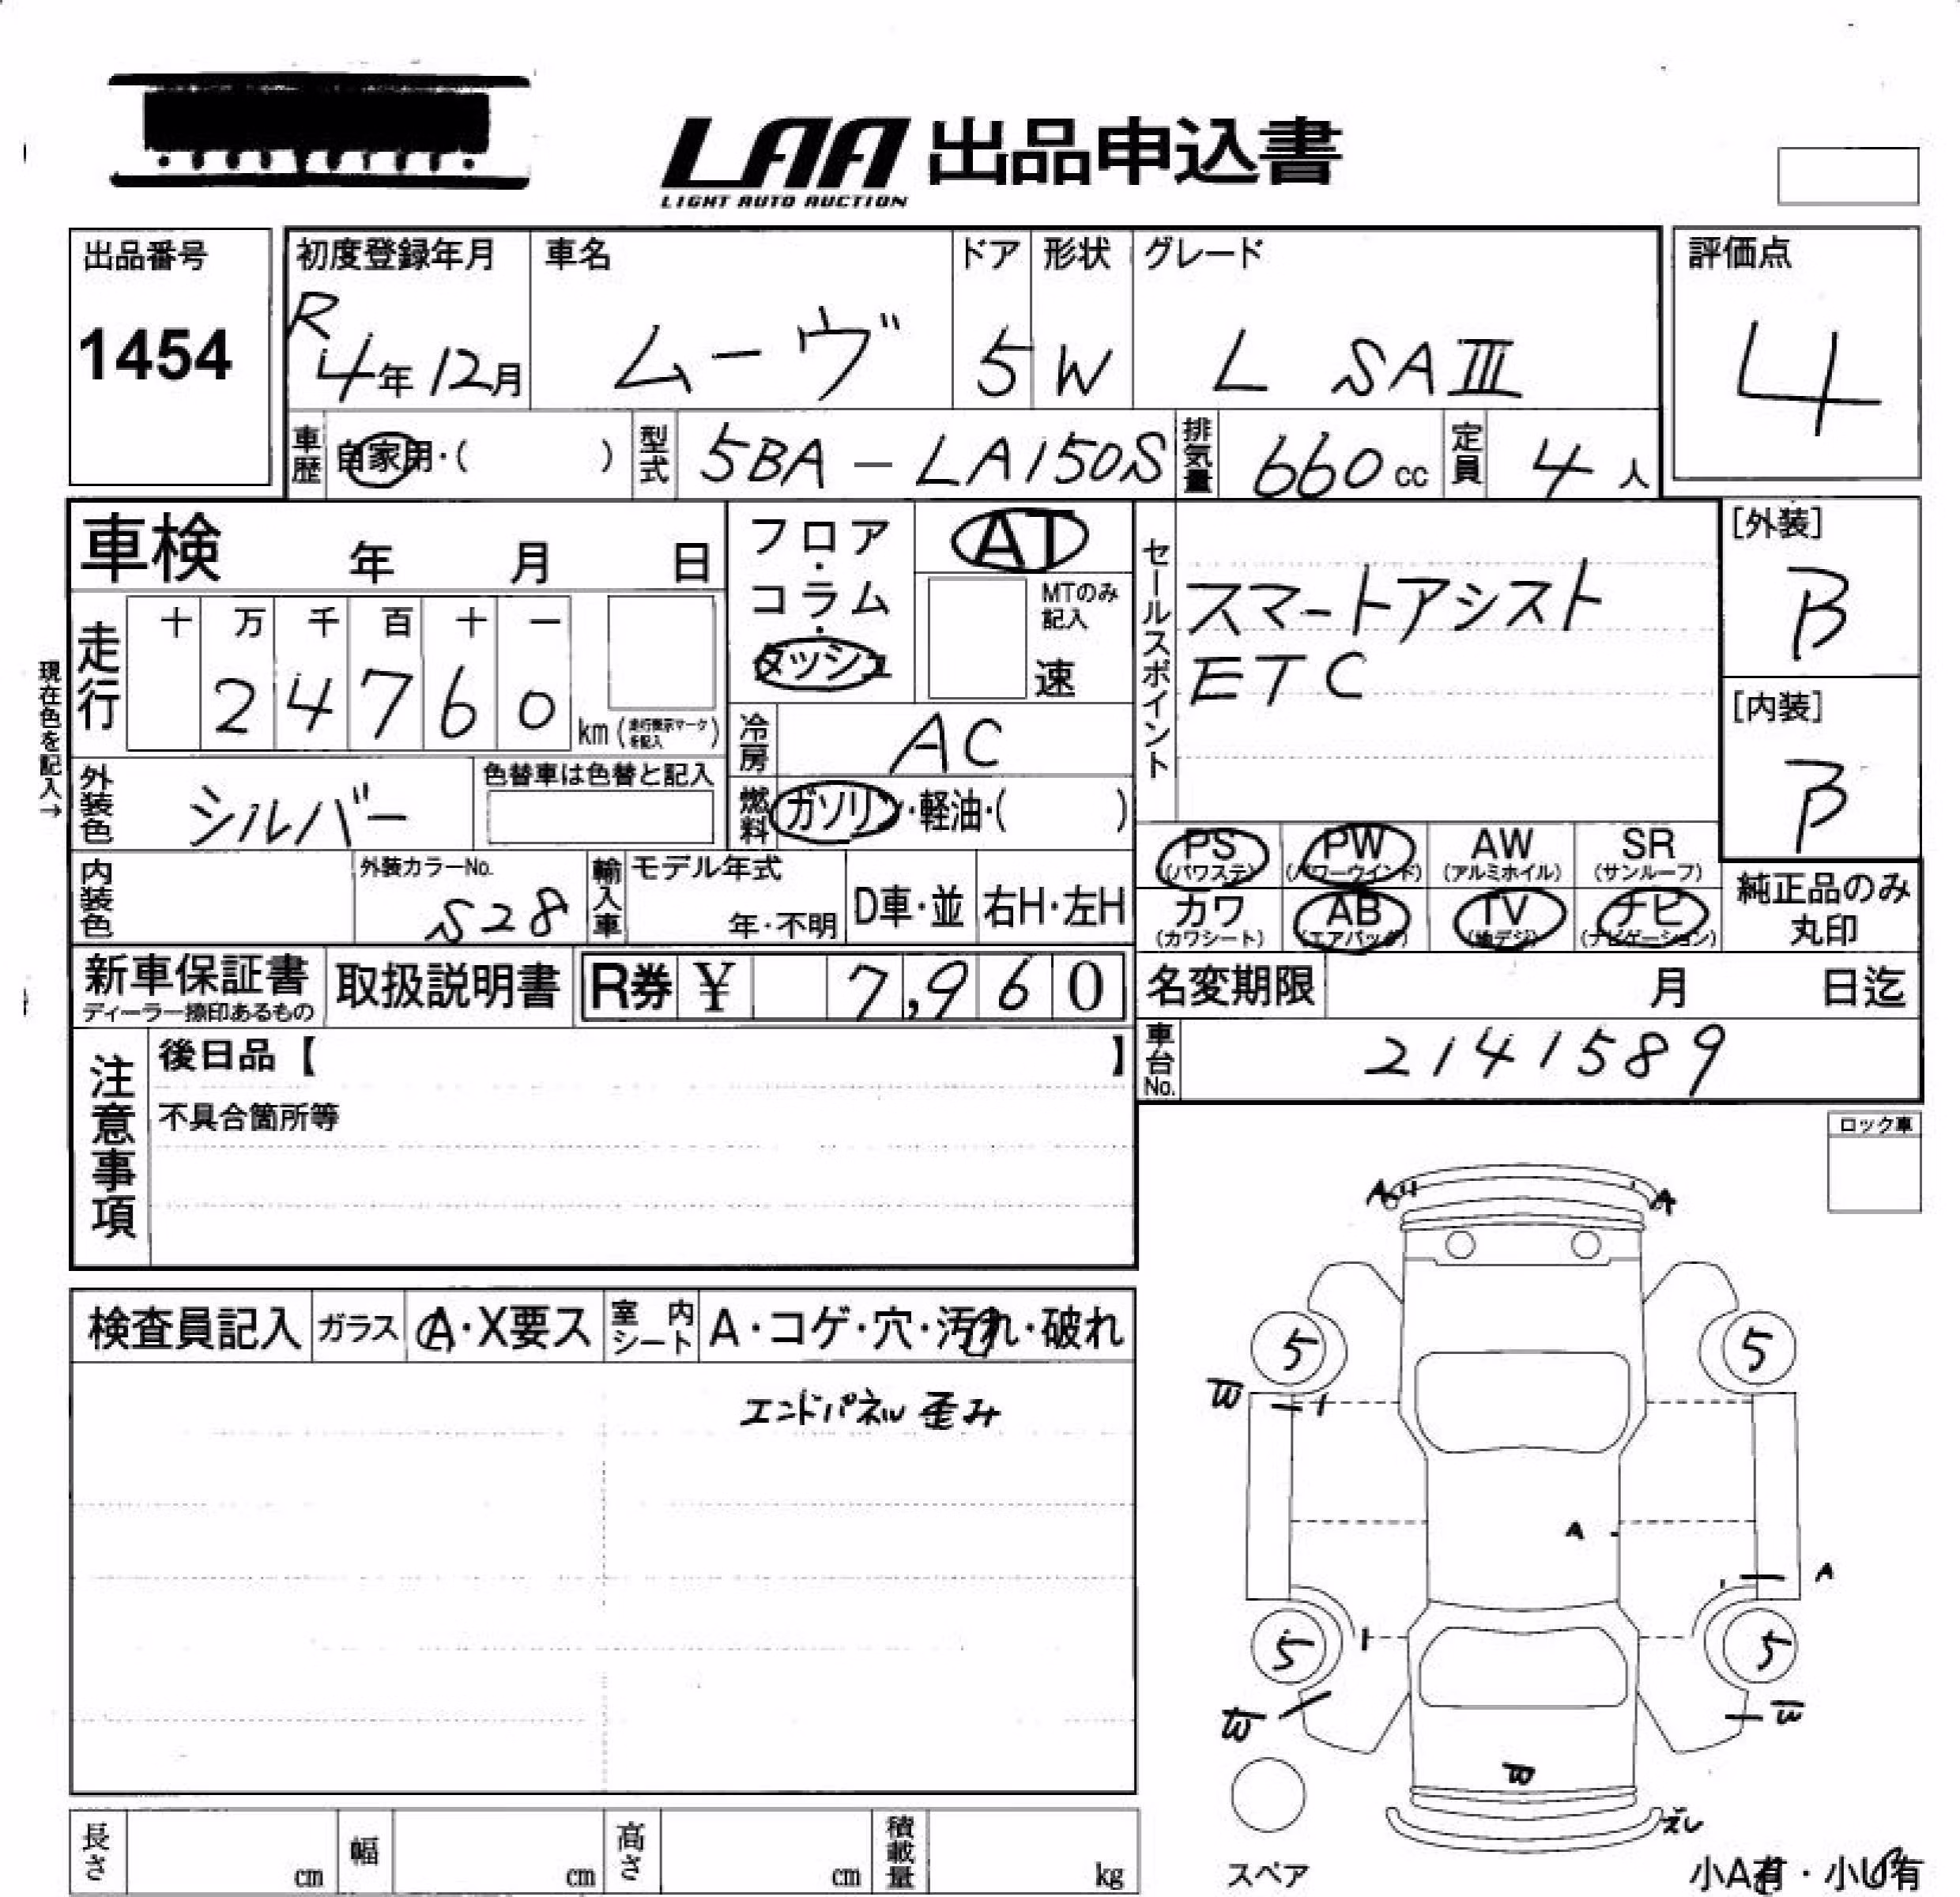 LAA 出品申込書
LIGHT AUTO AUCTION
出品番号
1454
初度登録年月
R4年12月
車名
ムーヴ
ドア
5
形状
W
グレード
L SAⅢ
評価点
4
車歴
自家用・( )
型式
5BA-LA150S
排気量
660cc
定員
4人
車検 年 月 日
フロア・コラム・ダッシュ
AT
MTのみ記入
速
セールスポイント
スマートアシスト
ETC
[外装]
B
[内装]
B
現在色を記入→
走行
十 万 千 百 十 一
2 4 7 6 0 km (走行表示マークを記入)
冷房
AC
外装色
シルバー
色替車は色替と記入
燃料
ガソリン・軽油・( )
PS (パワステ)
PW (パワーウインド)
AW (アルミホイル)
SR (サンルーフ)
カワ (カワシート)
AB (エアバッグ)
TV (地デジ)
ナビ (ナビゲーション)
純正品のみ丸印
内装色
外装カラーNo.
S28
輸入車
モデル年式
年・不明
D車・並
右H・左H
新車保証書
ディーラー捺印あるもの
取扱説明書
R券 ¥ 7,960
名変期限 月 日迄
車台No.
2141589
注意事項
後日品【 】
不具合箇所等
ロック車
検査員記入
ガラス
A・X要ス
室内シート
A・コゲ・穴・汚れ・破れ
エンドパネル歪み
A A
5 5
W
A
A
5 5
W W
W
ズレ
スペア
長さ cm
幅 cm
高さ cm
積載量 kg
小A有・小U有